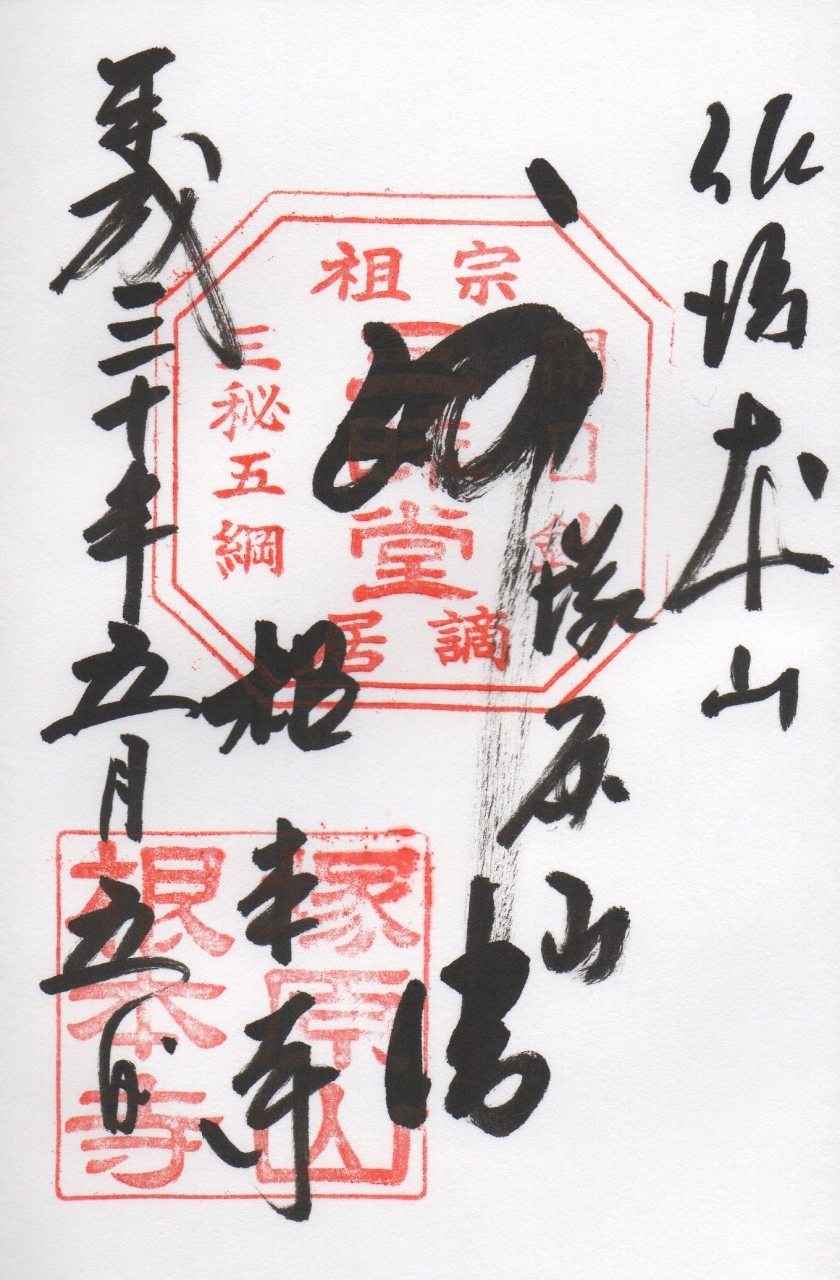 本山
妙法
塚原山
根本寺
平成三十年五月五日
宗祖
開目鈔
三昧堂
三秘五綱
謫居
塚原山
根本寺